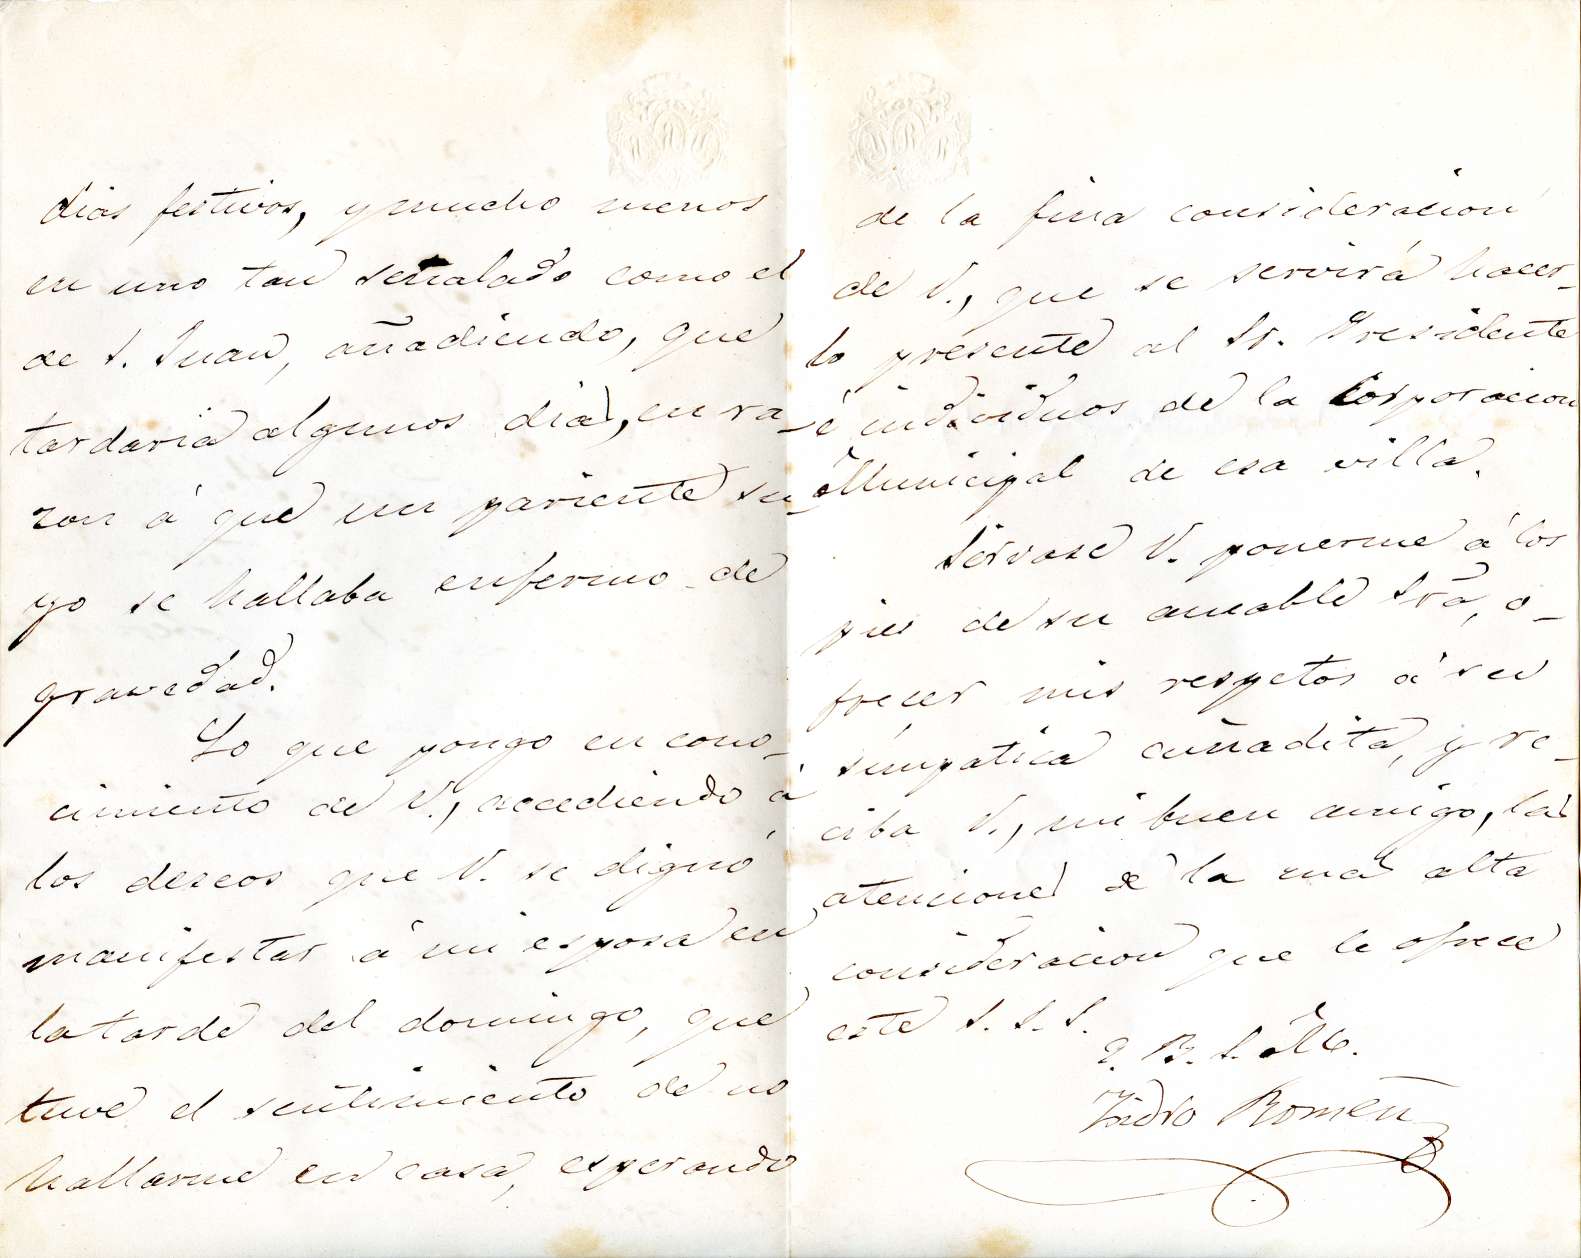 dias festivos, y mucho menos
en uno tan señalado como el
de S. Juan, añadiendo, que
tardaria algunos dias, en ra-
zon á que un pariente su-
yo se hallaba enfermo de
gravedad.
Lo que pongo en cono-
cimiento de V., accediendo á
los deseos que V. se dignó
manifestar á mi esposa en
la tarde del domingo, que
tuve el sentimiento de no
hallarme en casa, esperando
de la fina consideracion
de V., que se servirá hacer-
lo presente al Sr. Presidente
é individuos de la Corporacion
Municipal de esa villa.
Sirvase V. ponerme á los
pies de su amable Sra, o-
frecer mis respetos á su
simpatica cuñadita, y re-
ciba V., mi buen amigo, las
atenciones de la mas alta
consideracion que le ofrece
este S. S. S.
Q. B. S. M.
Isidro Romeu